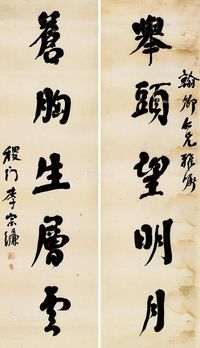 翰卿仁兄雅属
举頭望明月
蒼胸生層雲
稷门李宗濂